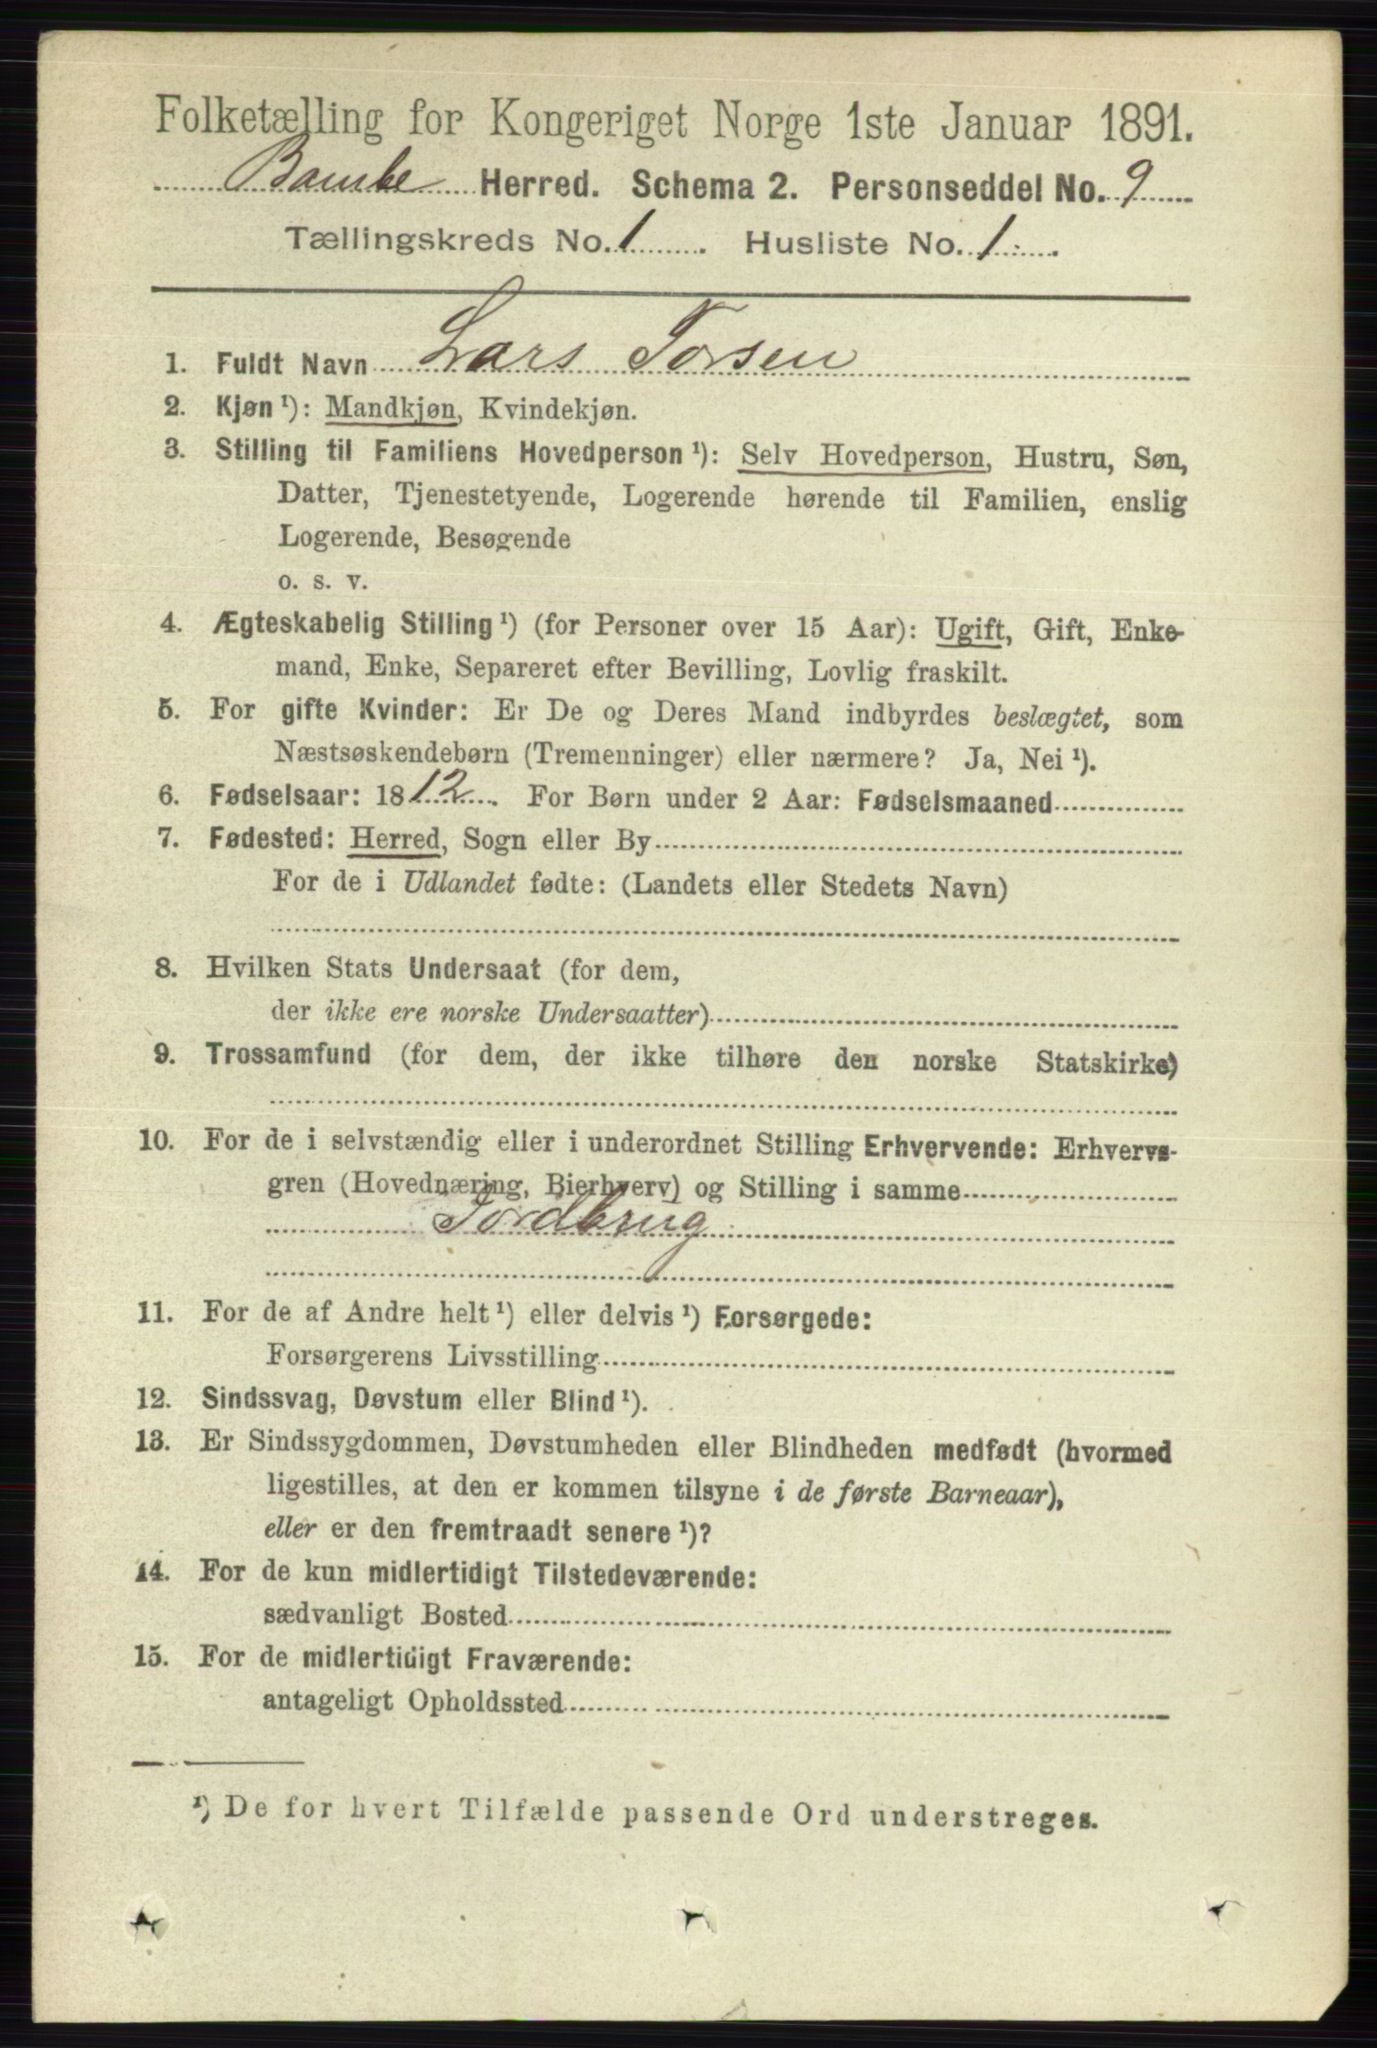 Folketælling for Kongeriget Norge 1ste Januar 1891.
Bamble Herred. Schema 2. Personseddel No. 9
Tællingskreds No. 1. Husliste No. 1.
1. Fuldt Navn Lars Torsen
2. Kjøn ¹): Mandkjøn, Kvindekjøn.
3. Stilling til Familiens Hovedperson ¹): Selv Hovedperson, Hustru, Søn,
Datter, Tjenestetyende, Logerende hørende til Familien, enslig
Logerende, Besøgende
o. s. v.
4. Ægteskabelig Stilling ¹) (for Personer over 15 Aar): Ugift, Gift, Enke-
mand, Enke, Separeret efter Bevilling, Lovlig fraskilt.
5. For gifte Kvinder: Er De og Deres Mand indbyrdes beslægtet, som
Næstsøskendebørn (Tremenninger) eller nærmere? Ja, Nei ¹).
6. Fødselsaar: 1812. For Børn under 2 Aar: Fødselsmaaned
7. Fødested: Herred, Sogn eller By
For de i Udlandet fødte: (Landets eller Stedets Navn)
8. Hvilken Stats Undersaat (for dem,
der ikke ere norske Undersaatter)
9. Trossamfund (for dem, der ikke tilhøre den norske Statskirke)
10. For de i selvstændig eller i underordnet Stilling Erhvervende: Erhvervs-
gren (Hovednæring, Bierhverv) og Stilling i samme
Jordbrug
11. For de af Andre helt ¹) eller delvis ¹) Forsørgede:
Forsørgerens Livsstilling
12. Sindssvag, Døvstum eller Blind ¹).
13. Er Sindssygdommen, Døvstumheden eller Blindheden medfødt (hvormed
ligestilles, at den er kommen tilsyne i de første Barneaar),
eller er den fremtraadt senere ¹)?
14. For de kun midlertidigt Tilstedeværende:
sædvanligt Bosted
15. For de midlertidigt Fraværende:
antageligt Opholdssted
¹) De for hvert Tilfælde passende Ord understreges.